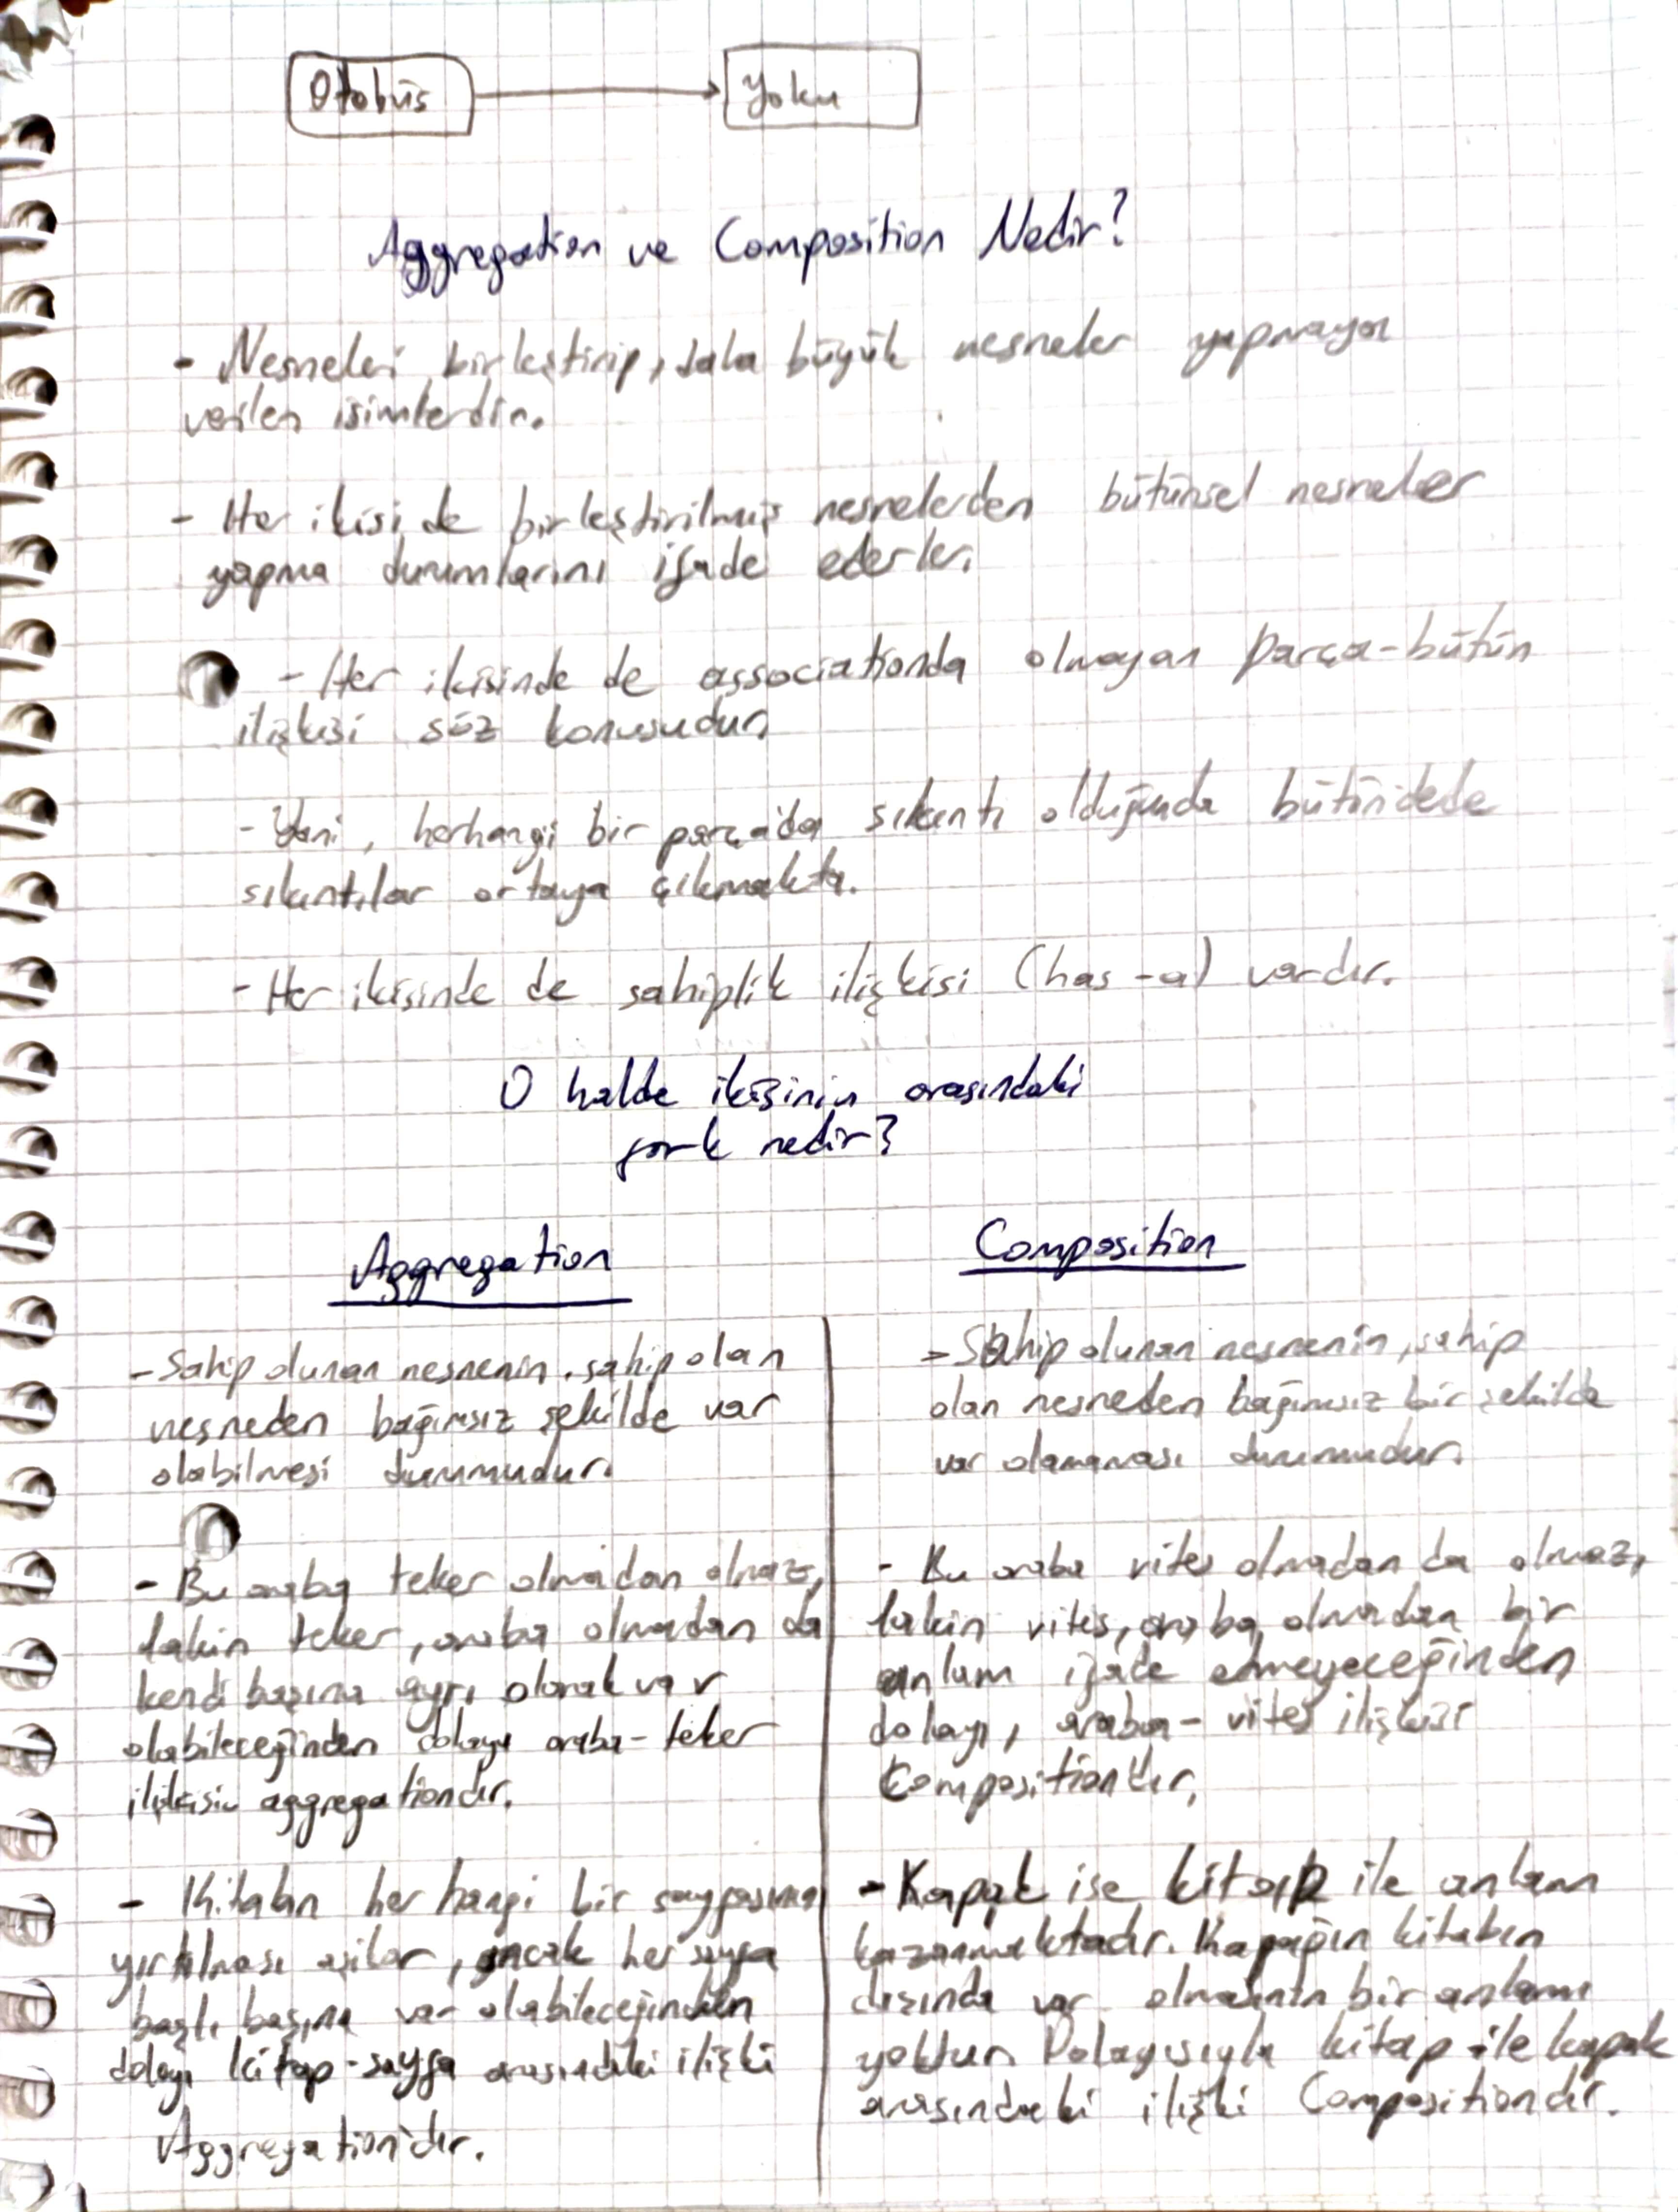 Otobüs
Yolcu
Aggregation ve Composition Nedir?
- Nesneleri birleştirip, daha büyük nesneler yapmaya
verilen isimlerdir.
- Her ikisi de birleştirilmiş nesnelerden bütünsel nesneler
yapma durumlarını ifade ederler.
- Her ikisinde de associationda olmayan parça-bütün
ilişkisi söz konusudur.
- Yani, herhangi bir parçada sıkıntı olduğunda bütündede
sıkıntılar ortaya çıkmakta.
- Her ikisinde de sahiplik ilişkisi (has-a) vardır.
O halde ikisinin arasındaki
fark nedir?
Aggregation
- Sahip olunan nesnenin, sahip olan
nesneden bağımsız şekilde var
olabilmesi durumudur.
- Bu araba teker olmadan olmaz,
lakin teker, araba olmadan da
kendi başına ayrı olarak var
olabileceğinden dolayı araba-teker
ilişkisi aggregationdır.
- Kitabın herhangi bir sayfasının
yırtılması, ancak her sayfa
başlı başına var olabileceğinden
dolayı kitap-sayfa arasındaki ilişki
Aggregation'dır.
Composition
- Sahip olunan nesnenin, sahip
olan nesneden bağımsız bir şekilde
var olamaması durumudur.
- Bu araba vites olmadan da olmaz,
lakin vites, araba olmadan bir
anlam ifade etmeyeceğinden
dolayı, araba-vites ilişkisi
Compositiondır.
- Kapak ise kitap ile anlam
kazanmaktadır. Kapağın kitabın
dışında var olmasının bir anlamı
yoktur. Dolayısıyla kitap ile kapak
arasındaki ilişki Compositiondır.